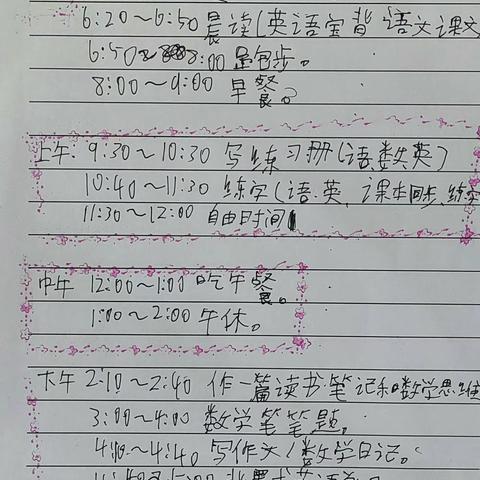 6:20~6:50 晨读(英语宝背 语文课文
6:50~8:00 跑步。
8:00~9:00 早餐。
上午: 9:30~10:30 写练习册(语数英)
10:40~11:30 练字(语.英, 课本同步,练字
11:30~12:00 自由时间
中午 12:00~1:00 吃午餐。
1:00~2:00 午休。
下午 2:10~2:40 作一篇读书笔记和数学思维
3:00~4:00 数学笔笔题。
4:10~4:40 写作文/数学日记。